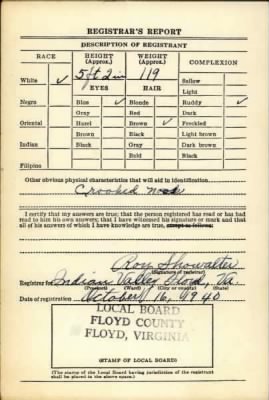 REGISTRAR'S REPORT
DESCRIPTION OF REGISTRANT
RACE HEIGHT (Approx.) WEIGHT (Approx.) COMPLEXION
White ✓ 5 ft 2 in 119 Sallow
EYES HAIR Light
Negro Blue ✓ Blonde Ruddy ✓
Gray Red Dark
Oriental Hazel Brown ✓ Freckled
Brown Black Light brown
Indian Black Gray Dark brown
Bald Black
Filipino
Other obvious physical characteristics that will aid in identification
Crooked
I certify that my answers are true; that the person registered has read or has had
read to him his own answers; that I have witnessed his signature or mark and that
all of his answers of which I have knowledge are true, except as follows:
Roy Showalter
(Signature of registrar)
Registrar for Indian Valley Floyd, Va.
(Precinct) (Ward) (City or county) (State)
Date of registration October 16, 1940
LOCAL BOARD
FLOYD COUNTY
FLOYD, VIRGINIA
(STAMP OF LOCAL BOARD)
(The stamp of the Local Board having jurisdiction of the registrant
shall be placed in the above space.)